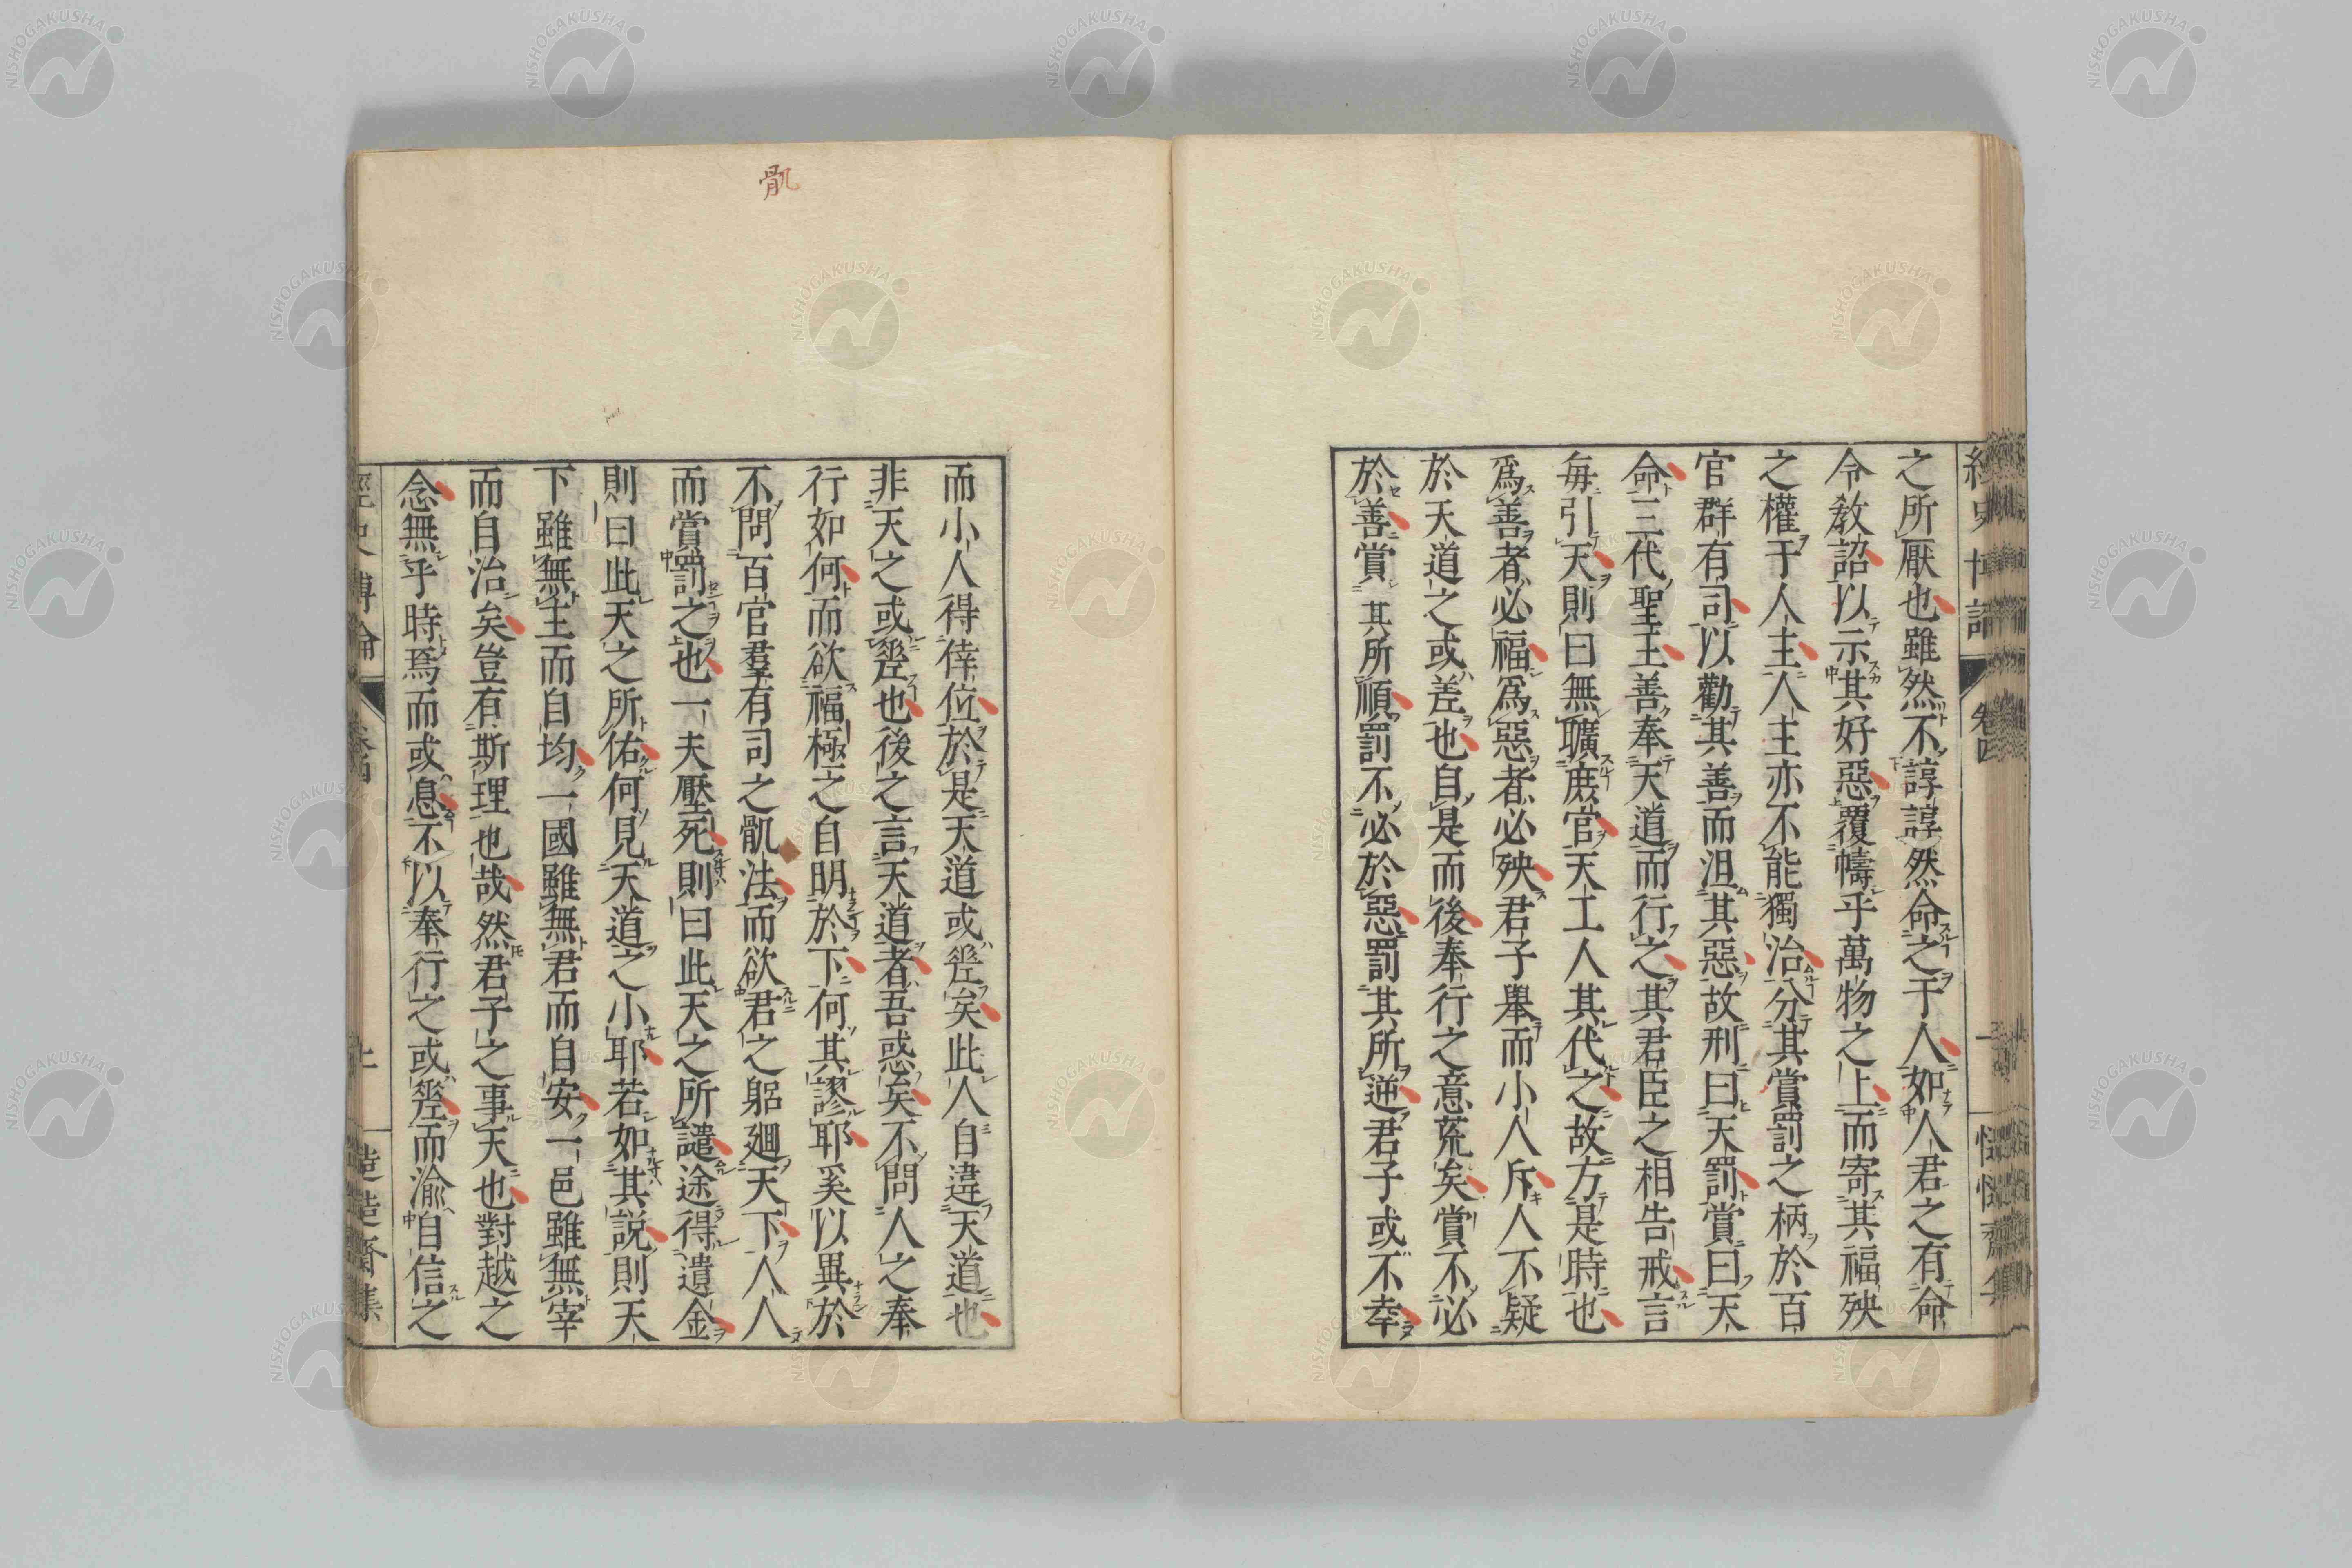 之所厭也雖然不諄諄然命之于人如人君之有命
令敎詔以示其好惡覆幬乎萬物之上而寄其福殃
之權于人主人主亦不能獨治分其賞罰之柄於百
官群有司以勸其善而沮其惡故刑曰天罰賞曰天
命三代聖王善奉天道而行之其君臣之相告戒言
每引天則曰無曠庶官天工人其代之故方是時也
爲善者必福爲惡者必殃君子舉而小人斥人不疑
於天道之或差也自是而後奉行之意荒矣賞不必
於善賞其所順罰不必於惡罰其所逆君子或不幸
而小人得倖位於是天道或爽矣此人自違天道也
非天之或爽也後之言天道者吾惑矣不問人之奉
行如何而欲福極之自明於下何其謬耶奚以異於
不問百官羣有司之骩法而欲君之躬廻天下人人
而賞罰之也一夫壓死則曰此天之所譴途得遺金
則曰此天之所佑何見天道之小耶若如其說則天
下雖無主而自均一國雖無君而自安一邑雖無宰
而自治矣豈有斯理也哉然君子之事天也對越之
念無乎時焉而或息不以奉行之或爽而渝自信之
骩
經史博論
卷四
NISHOGAKUSHA